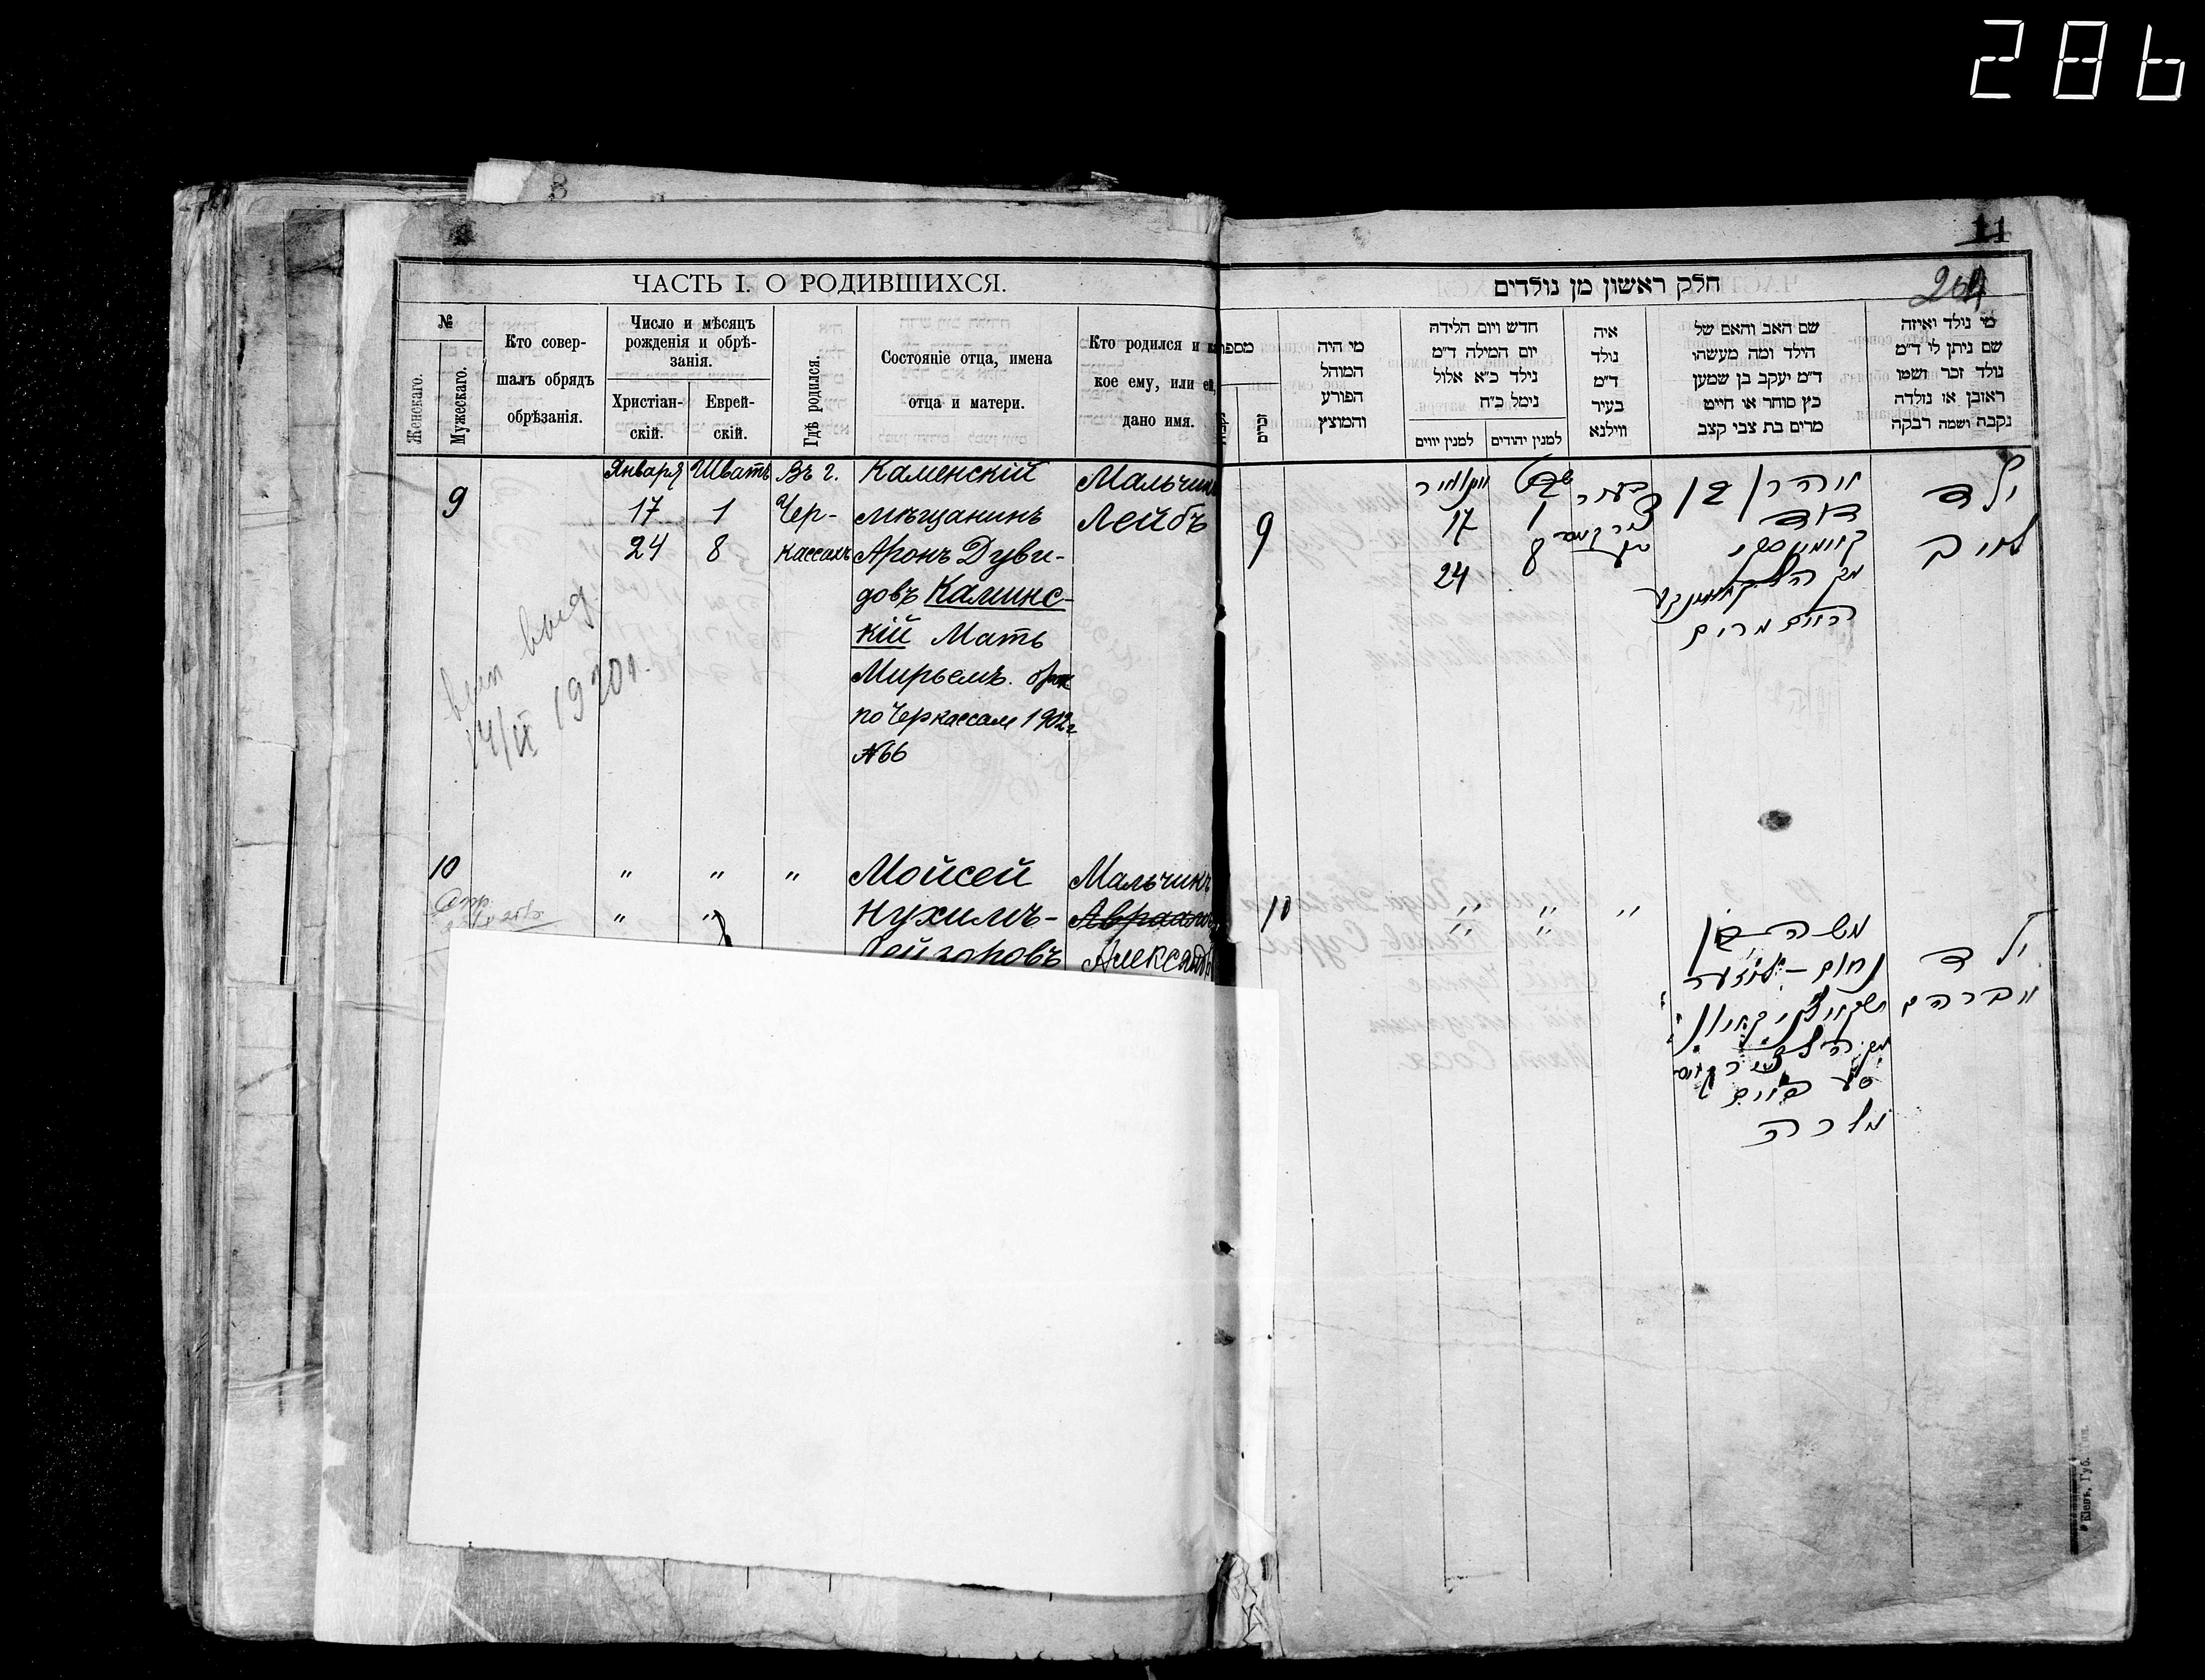 286
11
264
ЧАСТЬ I. О РОДИВШИХСЯ.
№
Женскаго.
Мужескаго.
Кто совер-
шалъ обрядъ
обрѣзанія.
Число и мѣсяцъ
рожденія и обрѣ-
занія.
Христіан-
скій.
Еврей-
скій.
Гдѣ родился.
Состояніе отца, имена
отца и матери.
Кто родился и
кое ему, или ей,
дано имя.
9
Января
17
24
Шватъ
1
8
Въ г.
Чер-
кассахъ
Каменскій
мѣщанинъ
Аронъ Дуви-
довъ Каминс-
кій Мать
Мирьемъ. брак
по Черкассам 1902г
№66
Мальчикъ
Лейбъ
14/II 1920г.
10
" " "
" "
Мойсей
Нухимъ-
Лейзоровъ
Мальчикъ
Авраамъ
Александръ
חלק ראשון מן נולדים
מי נולד ואיזה
שם ניתן לו ד״מ
נולד זכר ושמו
ראובן או נולדה
נקבה ושמה רבקה
שם האב והאם של
הילד ומה מעשהו
ד״מ יעקב בן שמען
כץ סוחר או חייט
מרים בת צבי קצב
איה
נולד
ד״מ
בעיר
ווילנא
חדש ויום הלידה
יום המילה ד״מ
נילד כ״א אלול
נימל כ״ח
למנין יהודים
למנין יווים
מי היה
המוהל
הפורע
והמוצץ
מספר
זכרים
ילד
לייב
אהרן בן
דוד
קאמינסקי
האם מרים
בעיר
שבט
1
8
יאנואר
17
24
9
ילד
אברהם
משה בן
נחום - אליעזר
10
" " "
" "
Кіевъ, Губ. тип.